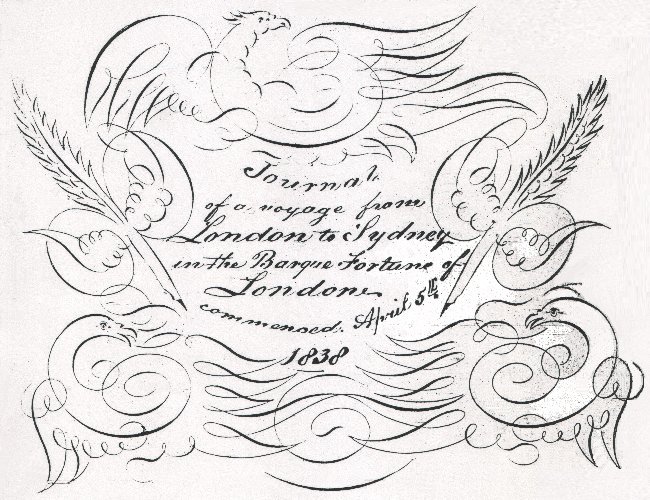 Journal
of a voyage from
London to Sydney
in the Barque Fortune of
London
commensed. April 5th
1838